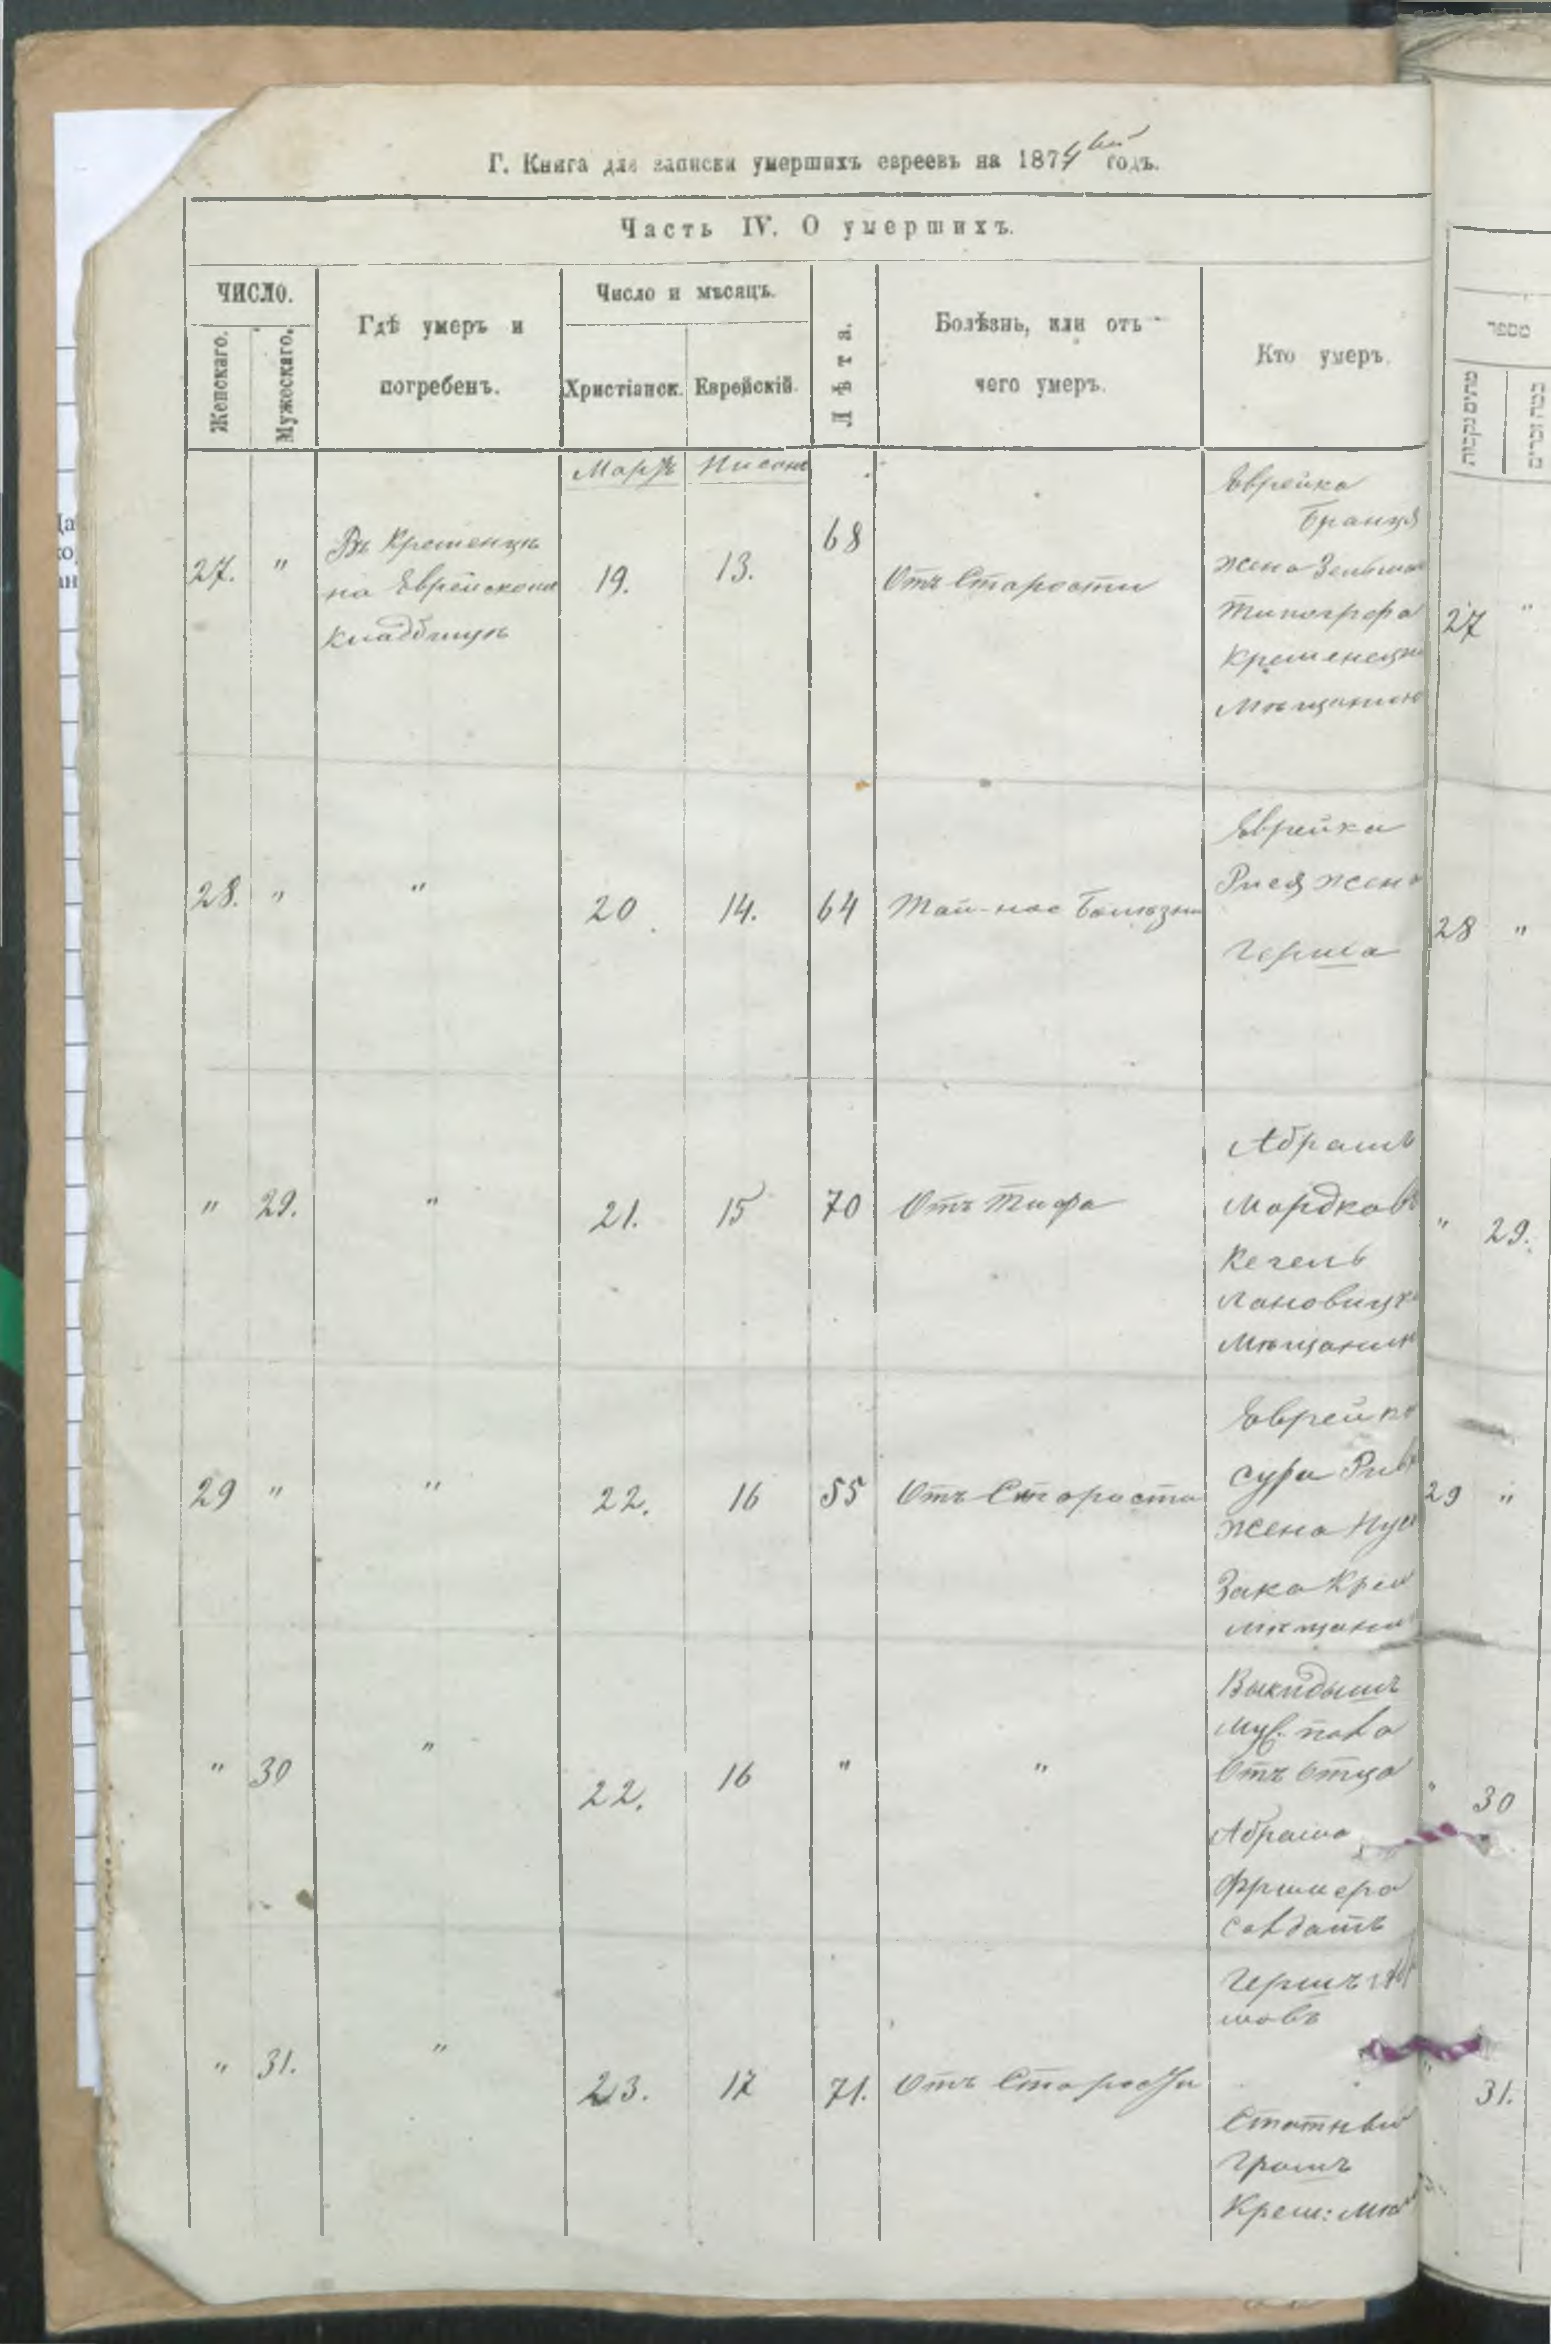 Г. Книга для записки умершихъ евреевъ на 1874ый годъ.
Часть IV. О умершихъ.
ЧИСЛО.
Женскаго.
Мужескаго.
Гдѣ умеръ и
погребенъ.
Число и мѣсяцъ.
Христіанск.
Еврейскій.
Лѣта.
Болѣзнь, или отъ
чего умеръ.
Кто умеръ.
מספר
Мартъ Нисонъ
27. " Въ Кременцѣ
на Еврейскомъ
кладбищѣ
19. 13. 68 Отъ Старости
Еврейка
Бранця
жена Зельмана
Типографа
Кременецк
Мѣщанин
27 "
28. " " 20. 14. 64
Еврейка
Рися жена
Герша
28 "
" 29. " 21. 15 70 Отъ Тифа
Абрамъ
Мордковъ
Кечель
Лановицк
Мѣщанин
" 29.
29 " " 22. 16 55 Отъ Старости
Еврейка
Сура Ривк
жена Нус
Зака Крем
мѣщанин
29 "
" 30 " 22. 16 " "
Выкидышъ
муж. пола
Отъ Отца
Абрама
солдатъ
" 30
" 31. " 23. 17 71. Отъ Старости
Гершъ
мовъ
Крем: Мѣщ
" 31.